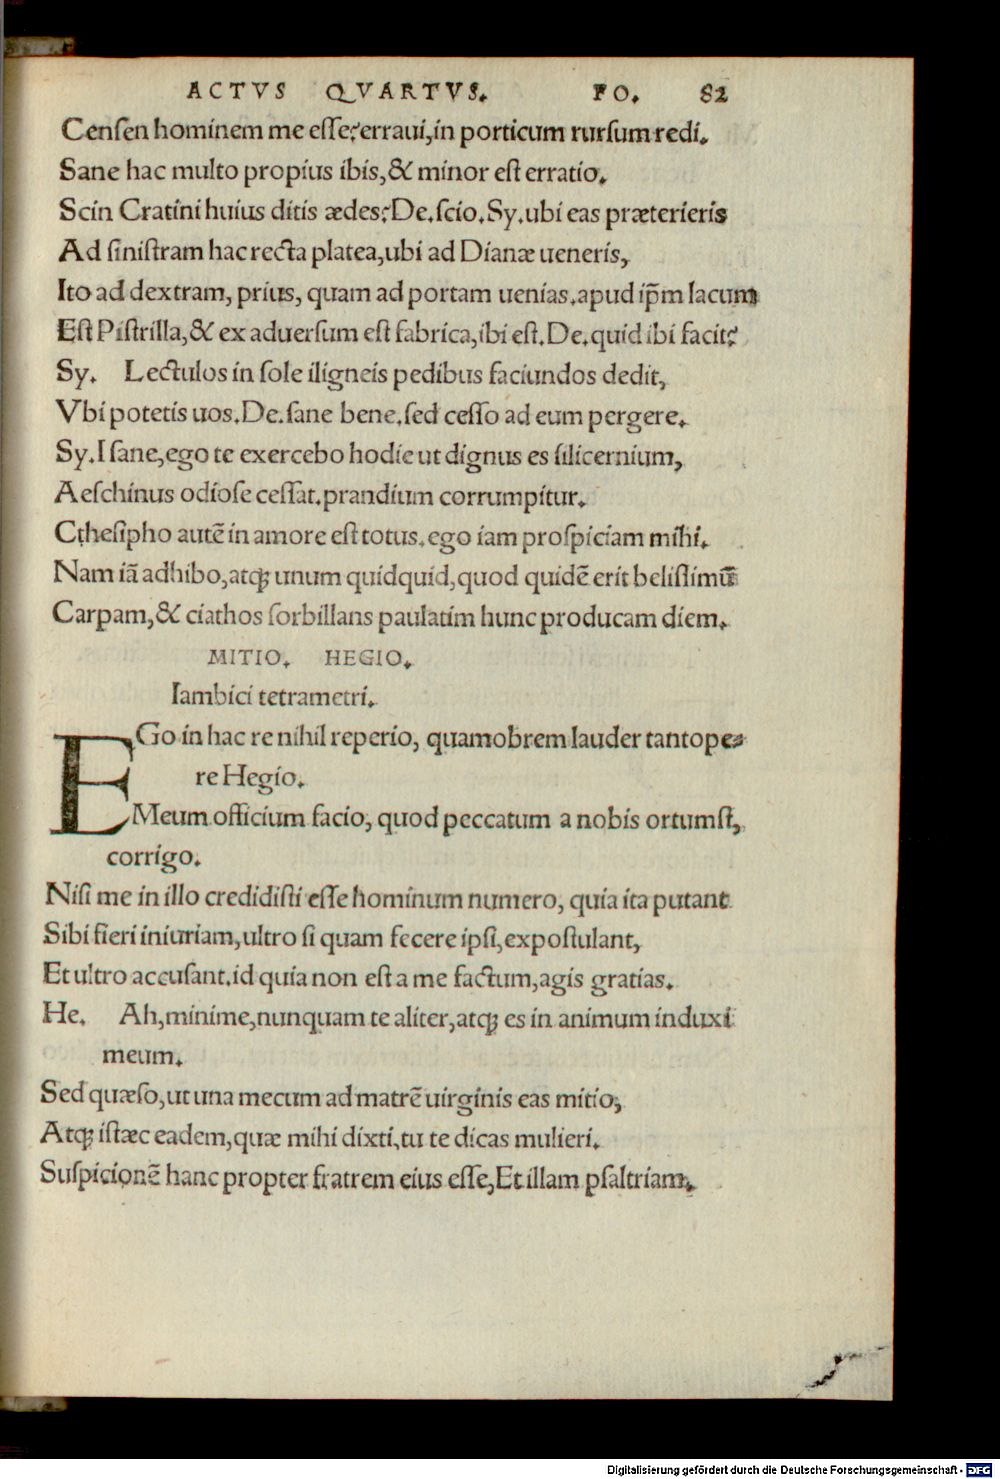 ACTVS QVARTVS. FO. 82
Censen hominem me esse? erraui, in porticum rursum redi.
Sane hac multo propius ibis, & minor est erratio.
Scin Cratini huius ditis ædes? De. scio. Sy. ubi eas præterieris
Ad sinistram hac recta platea, ubi ad Dianæ ueneris,
Ito ad dextram, prius, quam ad portam uenias. apud ip̄m lacum
Est Pistrilla, & ex aduersum est fabrica, ibi est. De. quid ibi facit?
Sy. Lectulos in sole iligneis pedibus faciundos dedit,
Vbi potetis uos. De. sane bene. sed cesso ad eum pergere.
Sy. I sane, ego te exercebo hodie ut dignus es silicernium,
Aeschinus odiose cessat. prandium corrumpitur.
Cthesipho autē in amore est totus. ego iam prospiciam mihi.
Nam iā adhibo, atq; unum quidquid, quod quidē erit belissimū
Carpam, & ciathos sorbillans paulatim hunc producam diem.
MITIO. HEGIO.
Iambici tetrametri.
EGo in hac re nihil reperio, quamobrem lauder tantope-
re Hegio.
Meum officium facio, quod peccatum a nobis ortumst,
corrigo.
Nisi me in illo credidisti esse hominum numero, quia ita putant
Sibi fieri iniuriam, ultro si quam fecere ipsi, expostulant,
Et ultro accusant. id quia non est a me factum, agis gratias.
He. Ah, minime, nunquam te aliter, atq; es in animum induxi
meum.
Sed quæso, ut una mecum ad matrē uirginis eas mitio,
Atq; istæc eadem, quæ mihi dixti, tu te dicas mulieri.
Suspicionē hanc propter fratrem eius esse, Et illam psaltriam.
Digitalisierung gefördert durch die Deutsche Forschungsgemeinschaft - DFG